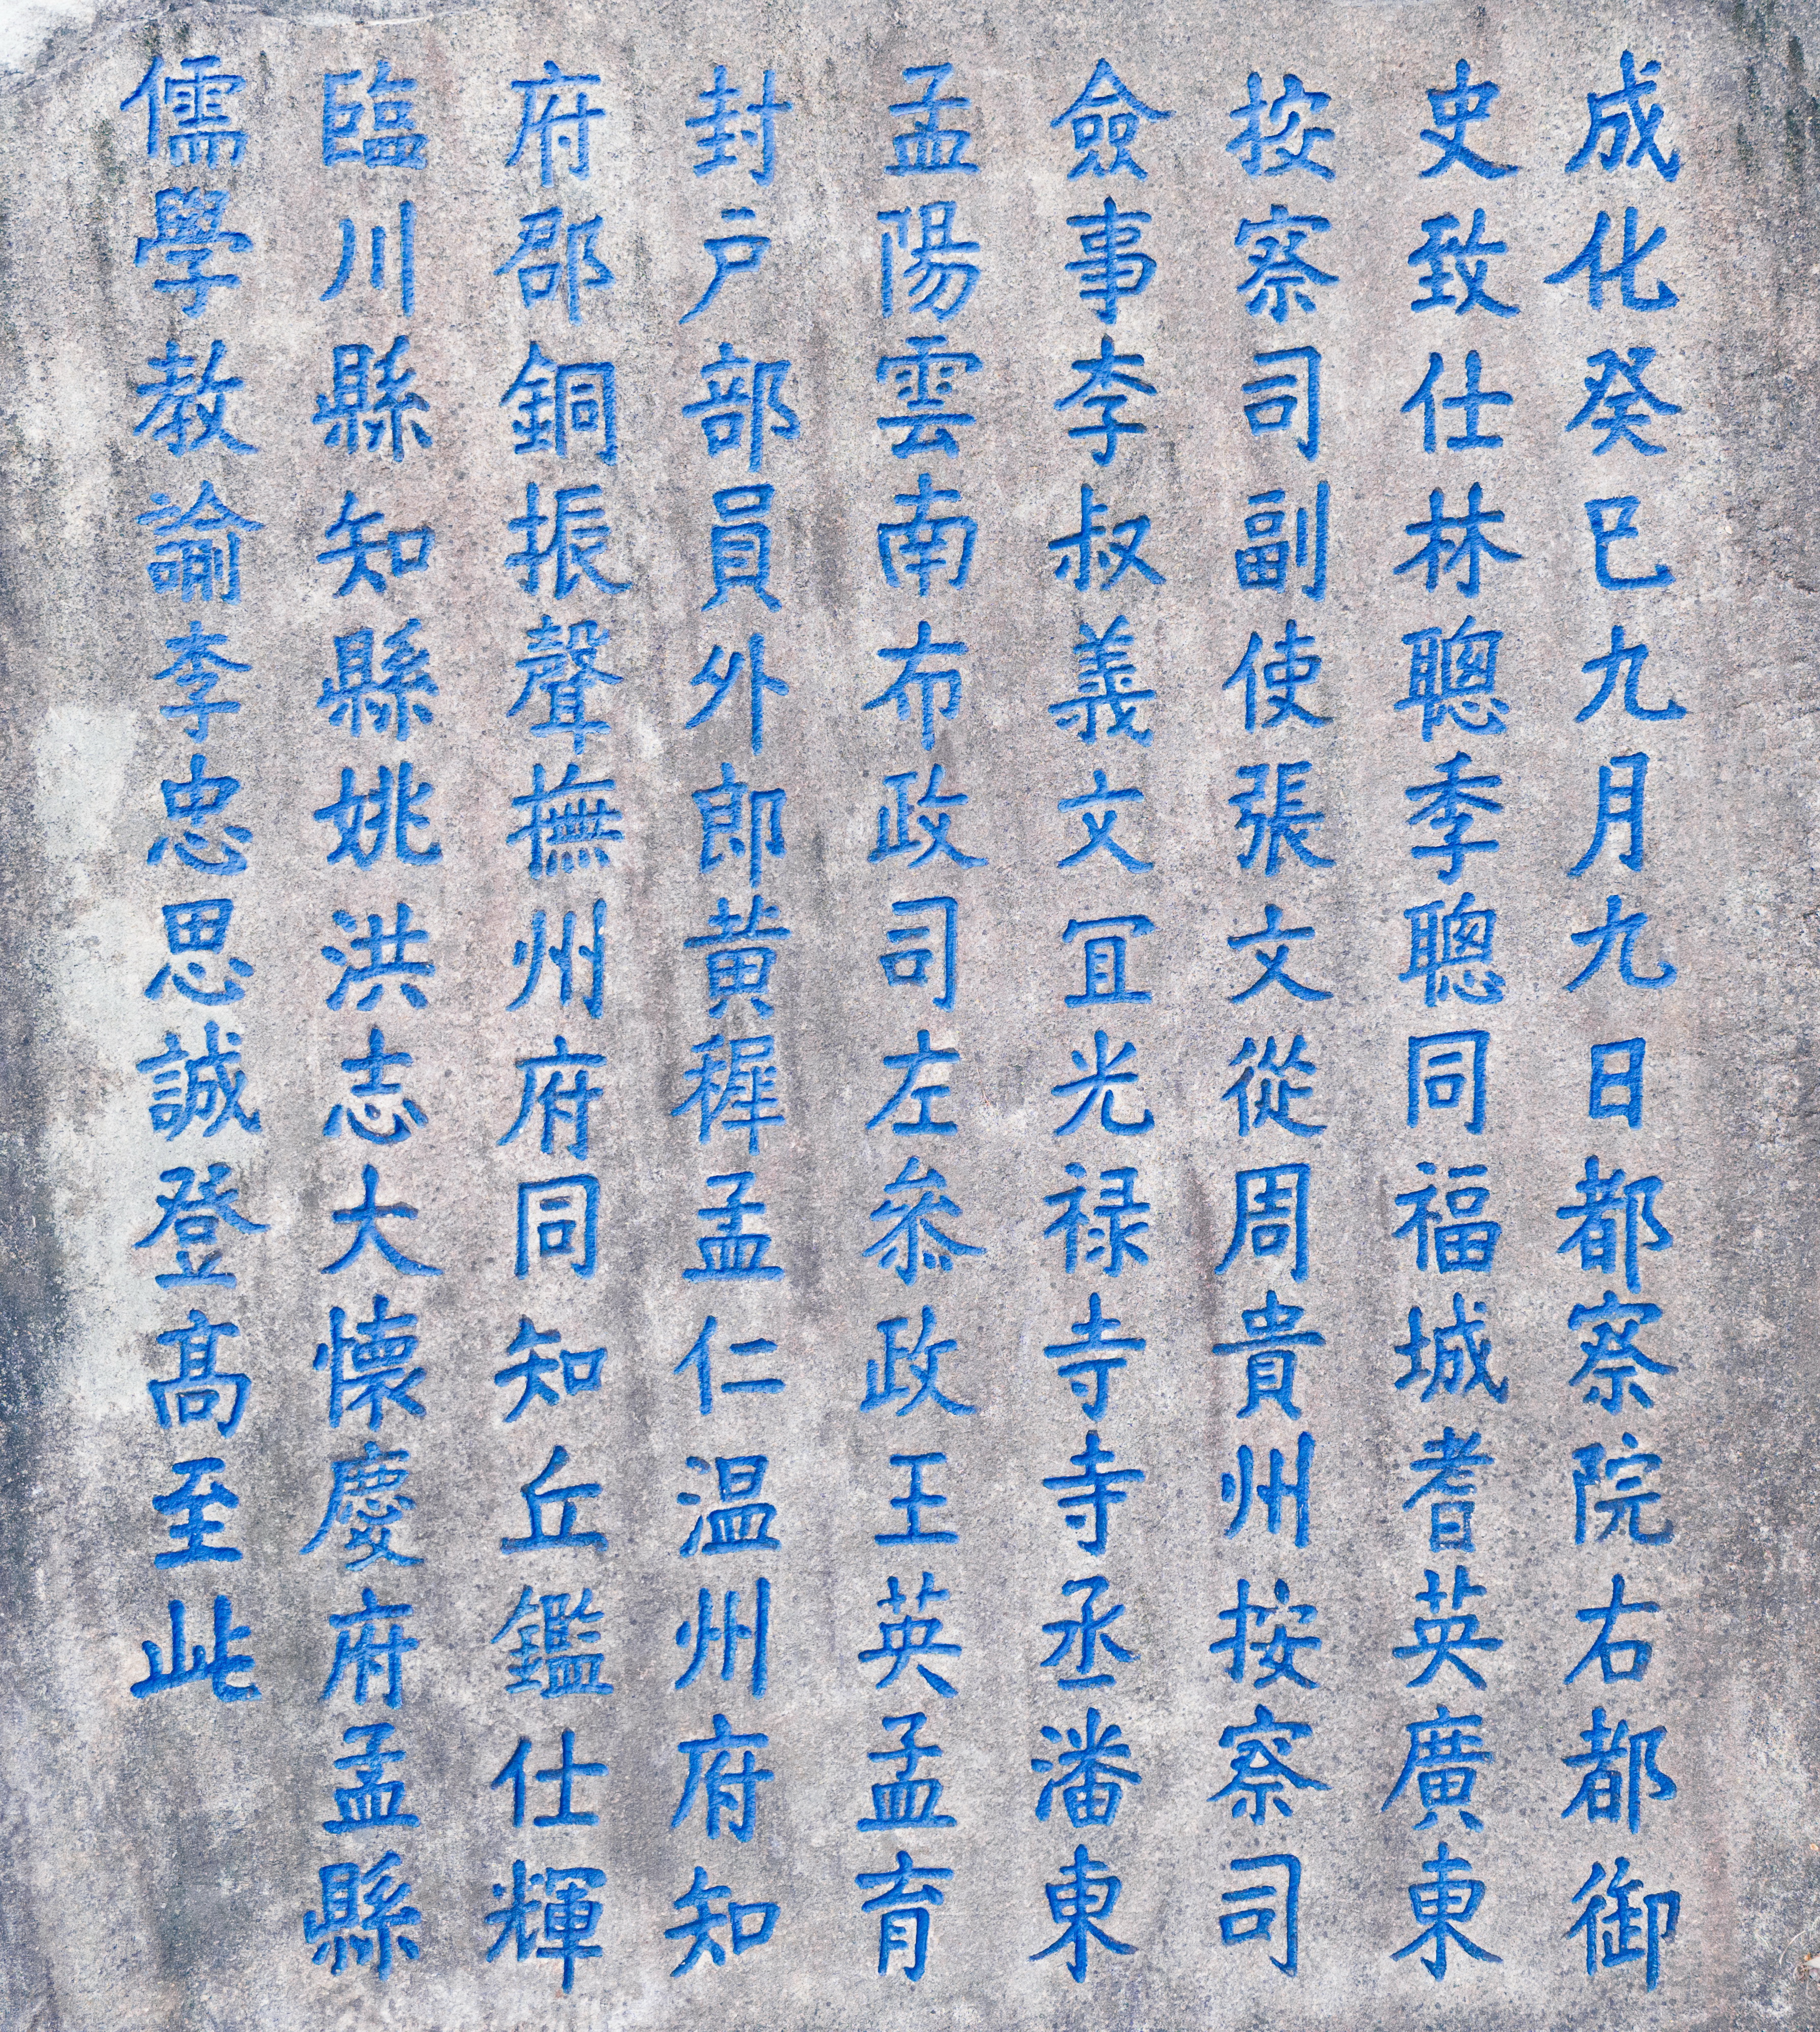 成化癸巳九月九日都察院右都御
史致仕林聰季聰同福城耆英廣東
按察司副使張文從周貴州按察司
僉事李叔義文冝光禄寺寺丞潘東
孟陽雲南布政司左叅政王英孟育
封戸部員外郎黄穉孟仁温州府知
府邵銅振聲撫州府同知丘鑑仕輝
臨川縣知縣姚洪志大懷慶府孟縣
儒學教諭李忠思誠登髙至此